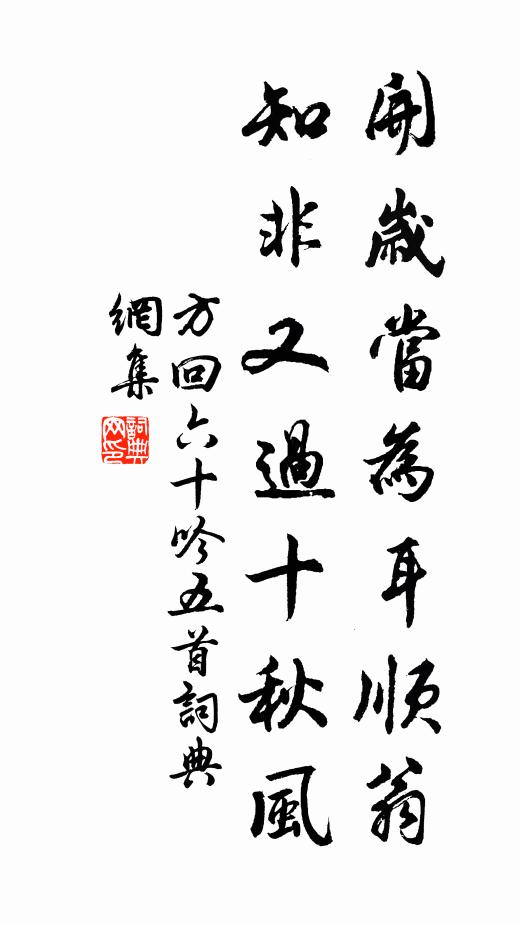 開歲當為耳順翁
知非又過十秋風
方回六十吟五首詞典
網集
詞典
网印